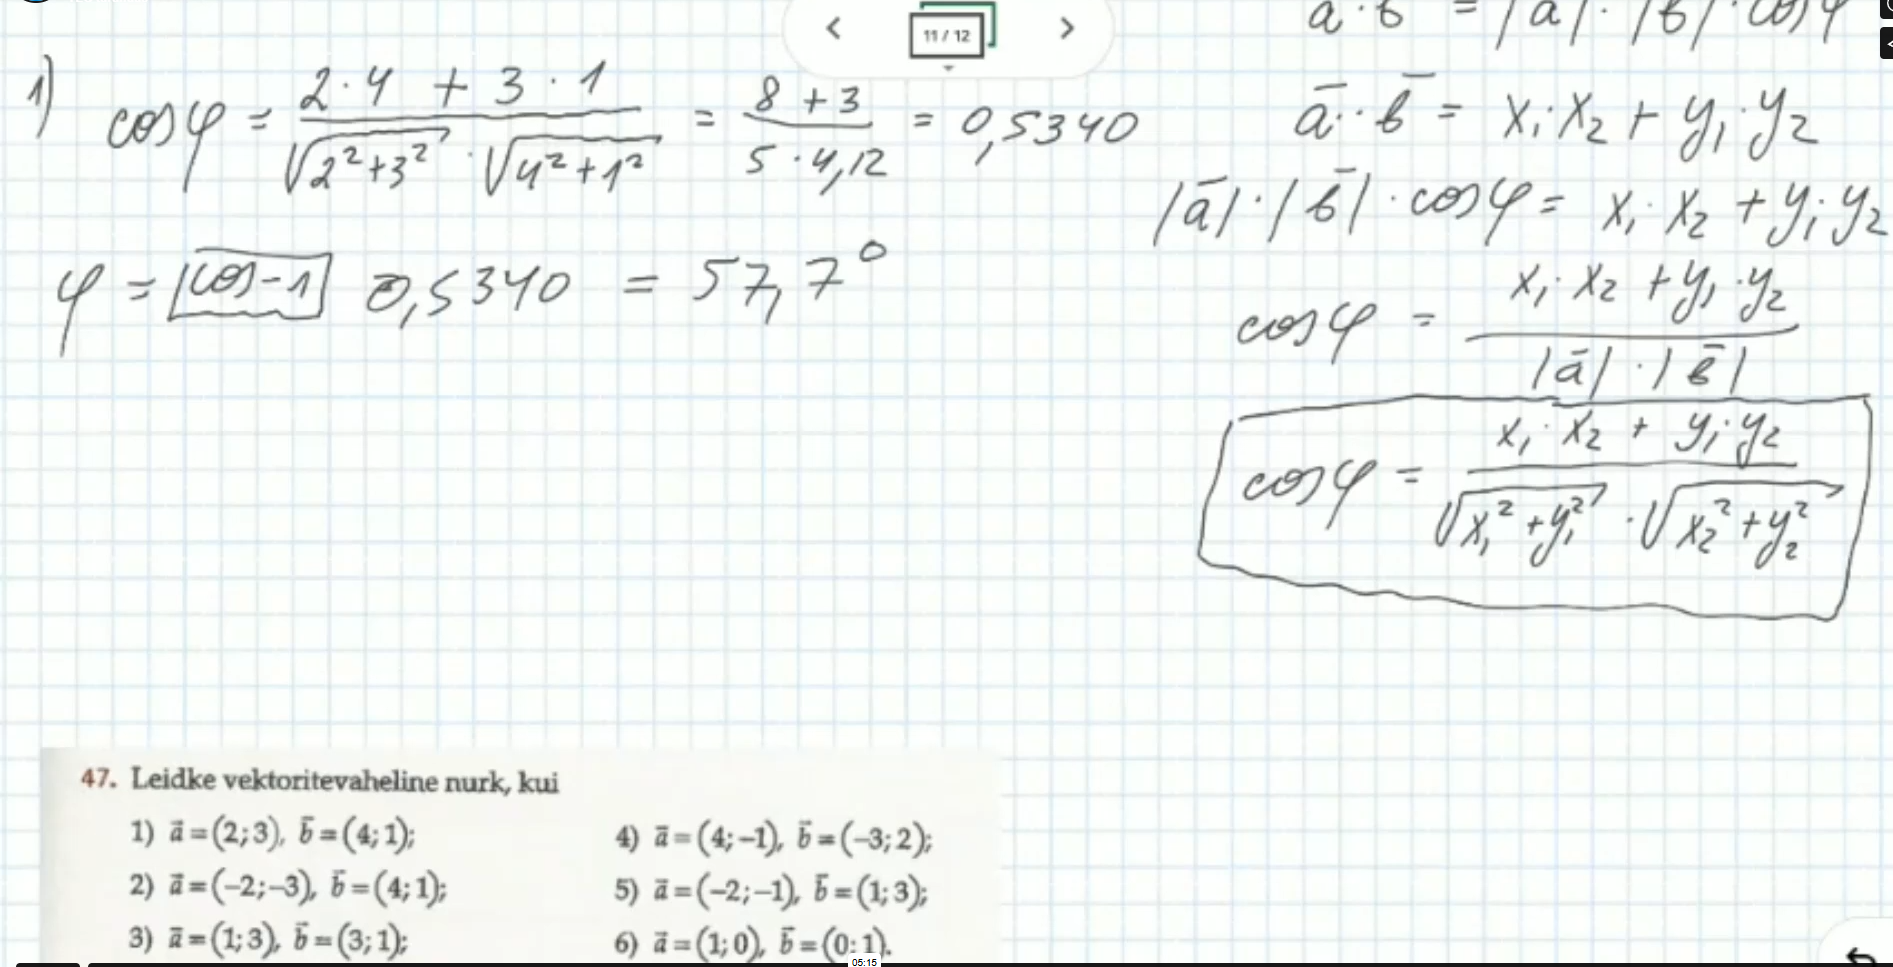 11 / 12
a̅ · b̅ = |a̅| · |b̅| · cos φ
1) cos φ = (2 · 4 + 3 · 1) / (√(2² + 3²) · √(4² + 1²)) = (8 + 3) / (5 · 4,12) = 0,5340
φ = |cos-1| 0,5340 = 57,7°
a̅ · b̅ = x₁ · x₂ + y₁ · y₂
|a̅| · |b̅| · cos φ = x₁ · x₂ + y₁ · y₂
cos φ = (x₁ · x₂ + y₁ · y₂) / (|a̅| · |b̅|)
cos φ = (x₁ · x₂ + y₁ · y₂) / (√(x₁² + y₁²) · √(x₂² + y₂²))
47. Leidke vektoritevaheline nurk, kui
1) a⃗ = (2; 3), b⃗ = (4; 1);
2) a⃗ = (−2; −3), b⃗ = (4; 1);
3) a⃗ = (1; 3), b⃗ = (3; 1);
4) a⃗ = (4; −1), b⃗ = (−3; 2);
5) a⃗ = (−2; −1), b⃗ = (1; 3);
6) a⃗ = (1; 0), b⃗ = (0; 1).
05:15